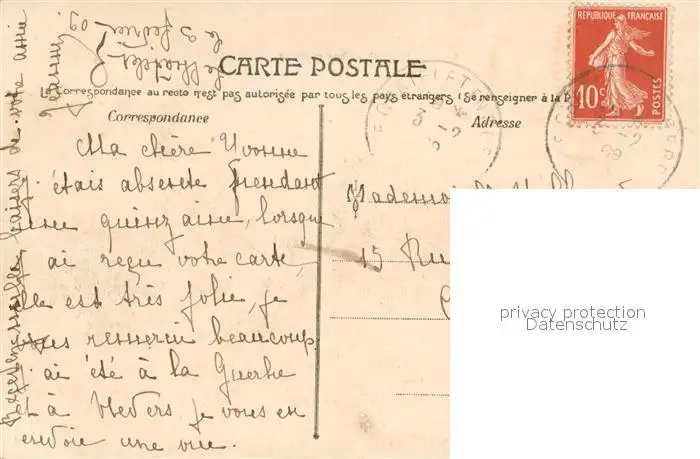 Le Chatelet
le 3 février 09.
REPUBLIQUE FRANÇAISE
10c
POSTES
CARTE POSTALE
La Correspondance au recto n'est pas autorisée par tous les pays étrangers (Se renseigner à la P
Correspondance
Adresse
Ma chère Yvonne
J'étais absente pendant
une quinzaine, lorsque
j'ai reçu votre carte,
elle est très jolie, je
vous remercie beaucoup.
J'ai été à la Guerche
et à Nevers, je vous en
envoie une vue.
Recevez
baisers de votre amie
Jeanne
Mademoiselle
15 Ru
privacy protection
Datenschutz